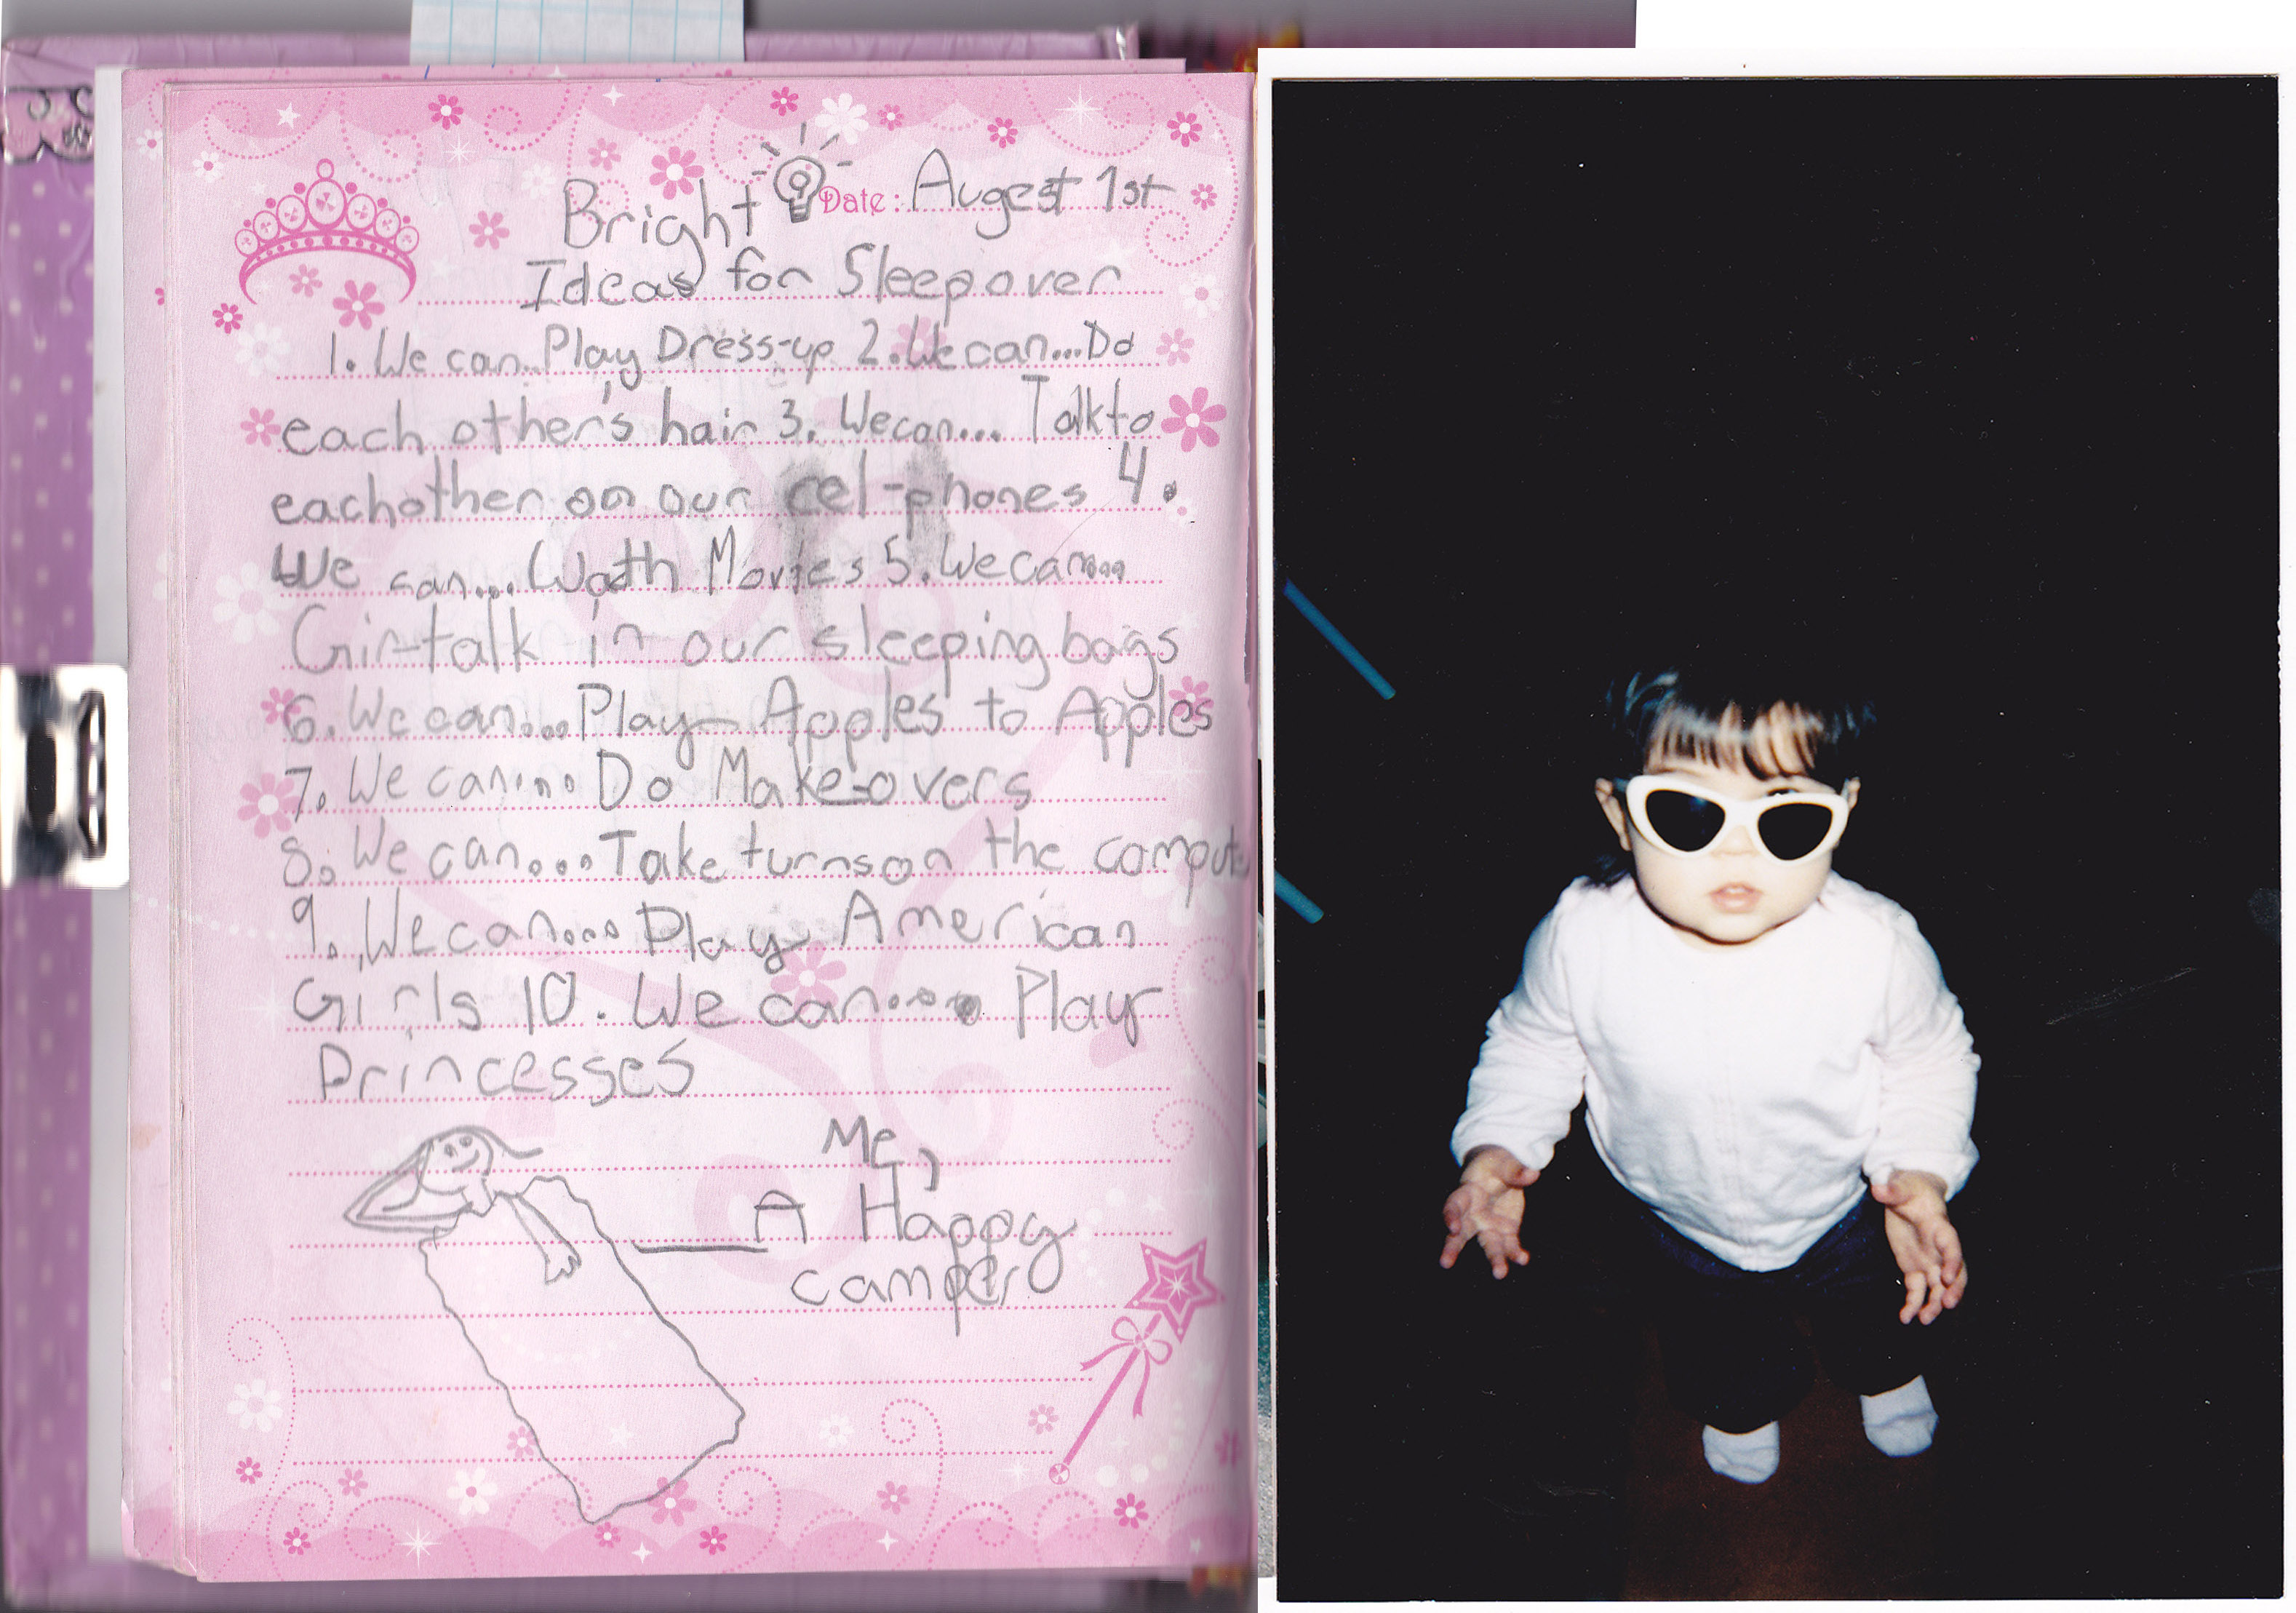 Bright Date: Augest 1st
Ideas for Sleepover
1. We can... Play Dress-up 2. We can... Do
each other's hair 3. We can... Talk to
eachother on our cel-phones 4.
We can... Wacth Movies 5. We can...
Girl-talk in our sleeping bags
6. We can... Play Apples to Apples
7. We can... Do Make-overs
8. We can... Take turns on the compute
9. We can... Play American
Girls 10. We can... Play
Princesses
Me,
A Happy
camper